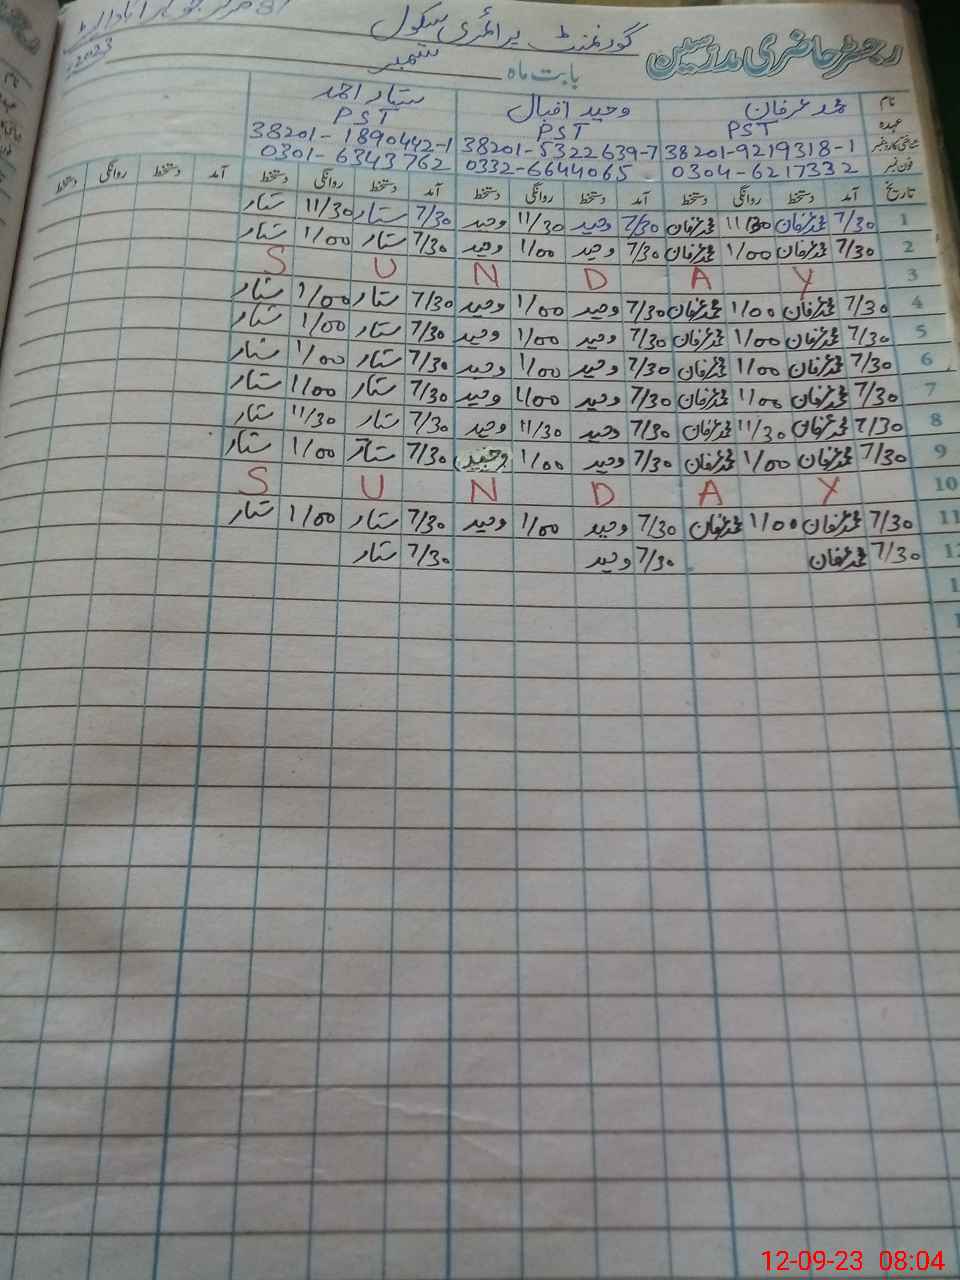 رجسٹر حاضری مدرسین گورنمنٹ پرائمری سکول
بابت ماہ ستمبر 2023
نام محمد عرفان وحید اقبال ستار احمد
عہدہ PST PST PST
شناختی کارڈ نمبر 38201-9219318-1 38201-5322639-7 38201-1890442-1
فون نمبر 0304-6217332 0332-6644065 0301-6343762
تاریخ آمد دستخط روانگی دستخط آمد دستخط روانگی دستخط آمد دستخط روانگی دستخط آمد دستخط روانگی دستخط
1 7/30 محمد عرفان 11/30 محمد عرفان 7/30 وحید 11/30 وحید 7/30 ستار 11/30 ستار
2 7/30 محمد عرفان 1/00 محمد عرفان 7/30 وحید 1/00 وحید 7/30 ستار 1/00 ستار
3 S U N D A Y
4 7/30 محمد عرفان 1/00 محمد عرفان 7/30 وحید 1/00 وحید 7/30 ستار 1/00 ستار
5 7/30 محمد عرفان 1/00 محمد عرفان 7/30 وحید 1/00 وحید 7/30 ستار 1/00 ستار
6 7/30 محمد عرفان 1/00 محمد عرفان 7/30 وحید 1/00 وحید 7/30 ستار 1/00 ستار
7 7/30 محمد عرفان 1/00 محمد عرفان 7/30 وحید 1/00 وحید 7/30 ستار 1/00 ستار
8 7/30 محمد عرفان 11/30 محمد عرفان 7/30 وحید 11/30 وحید 7/30 ستار 11/30 ستار
9 7/30 محمد عرفان 1/00 محمد عرفان 7/30 وحید 1/00 وحید 7/30 ستار 1/00 ستار
10 S U N D A Y
11 7/30 محمد عرفان 1/00 محمد عرفان 7/30 وحید 1/00 وحید 7/30 ستار 1/00 ستار
12 7/30 محمد عرفان 7/30 وحید 7/30 ستار
12-09-23 08:04